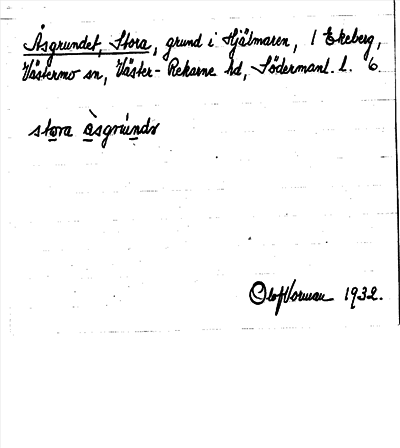 Åsgrundet, Stora, grund i Hjälmaren, / Ekeberg,
Västermo sn, Väster-Rekarne hd, Södermanl. l. 6
stora åsgrùndə
Olof Vorman 1932.